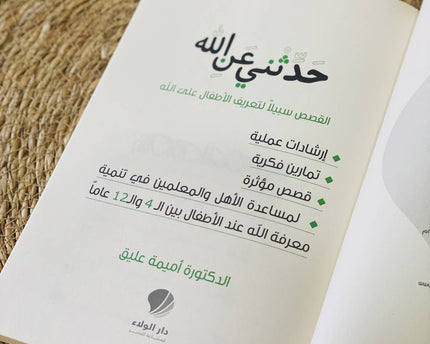 حَدِّثْني عَنِ الله
القصص سبيلاً لتعريف الأطفال على الله
إرشادات عملية
تمارين فكرية
قصص مؤثرة
لمساعدة الأهل والمعلمين في تنمية
معرفة الله عند الأطفال بين الـ 4 والـ12 عاماً
الدكتورة أميمة عليق
دار الولاء